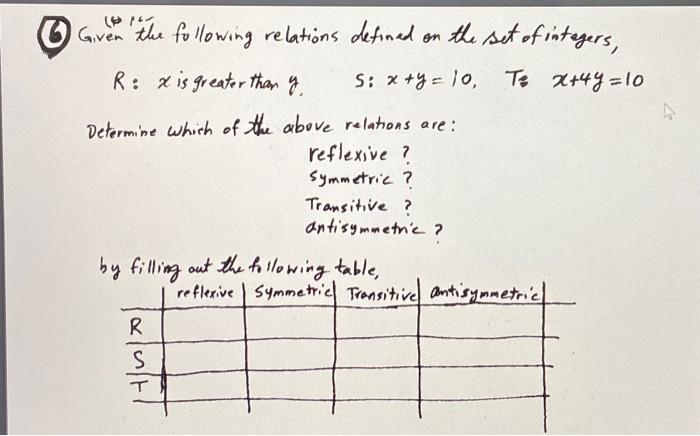 6 Given the following relations defined on the set of integers,
R: x is greater than y. S: x + y = 10, T: x+4y = 10
Determine which of the above relations are:
reflexive ?
Symmetric ?
Transitive ?
antisymmetric ?
by filling out the following table,
reflexive Symmetric Transitive antisymmetric
R
S
T